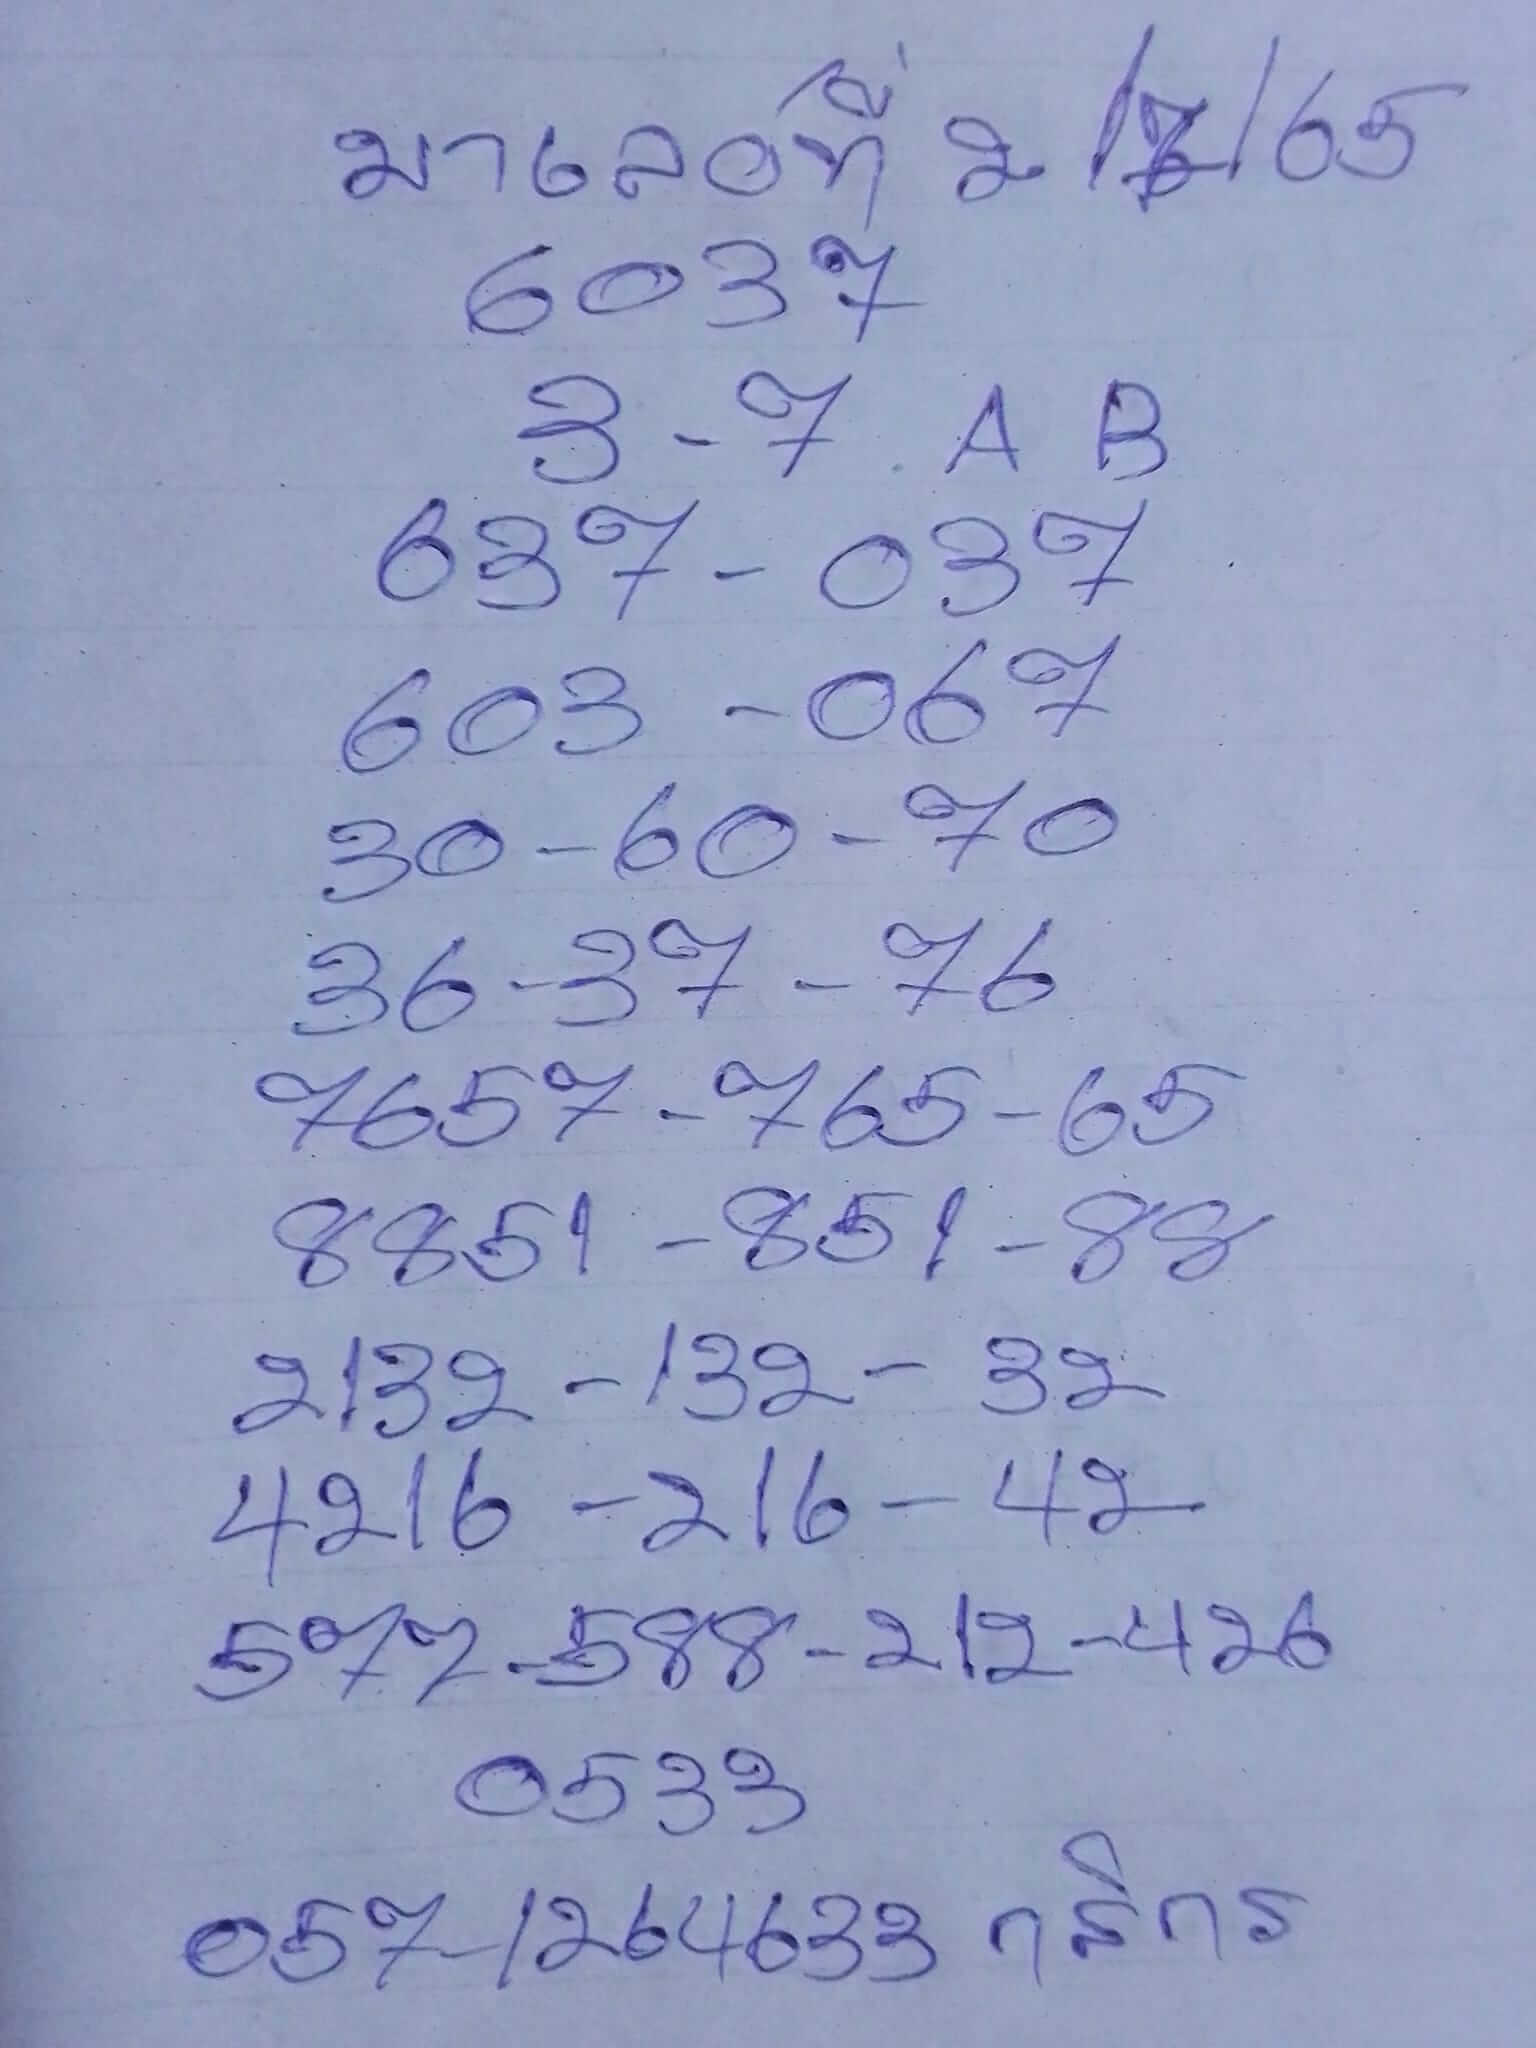 มาเลอที่ 2 /7/65
6037
3-7 A B
637-037
603-067
30-60-70
36-37-76
7657-765-65
8851-851-88
2132-132-32
4216-216-42
577-588-212-426
0533
057-1264633 กสิกร